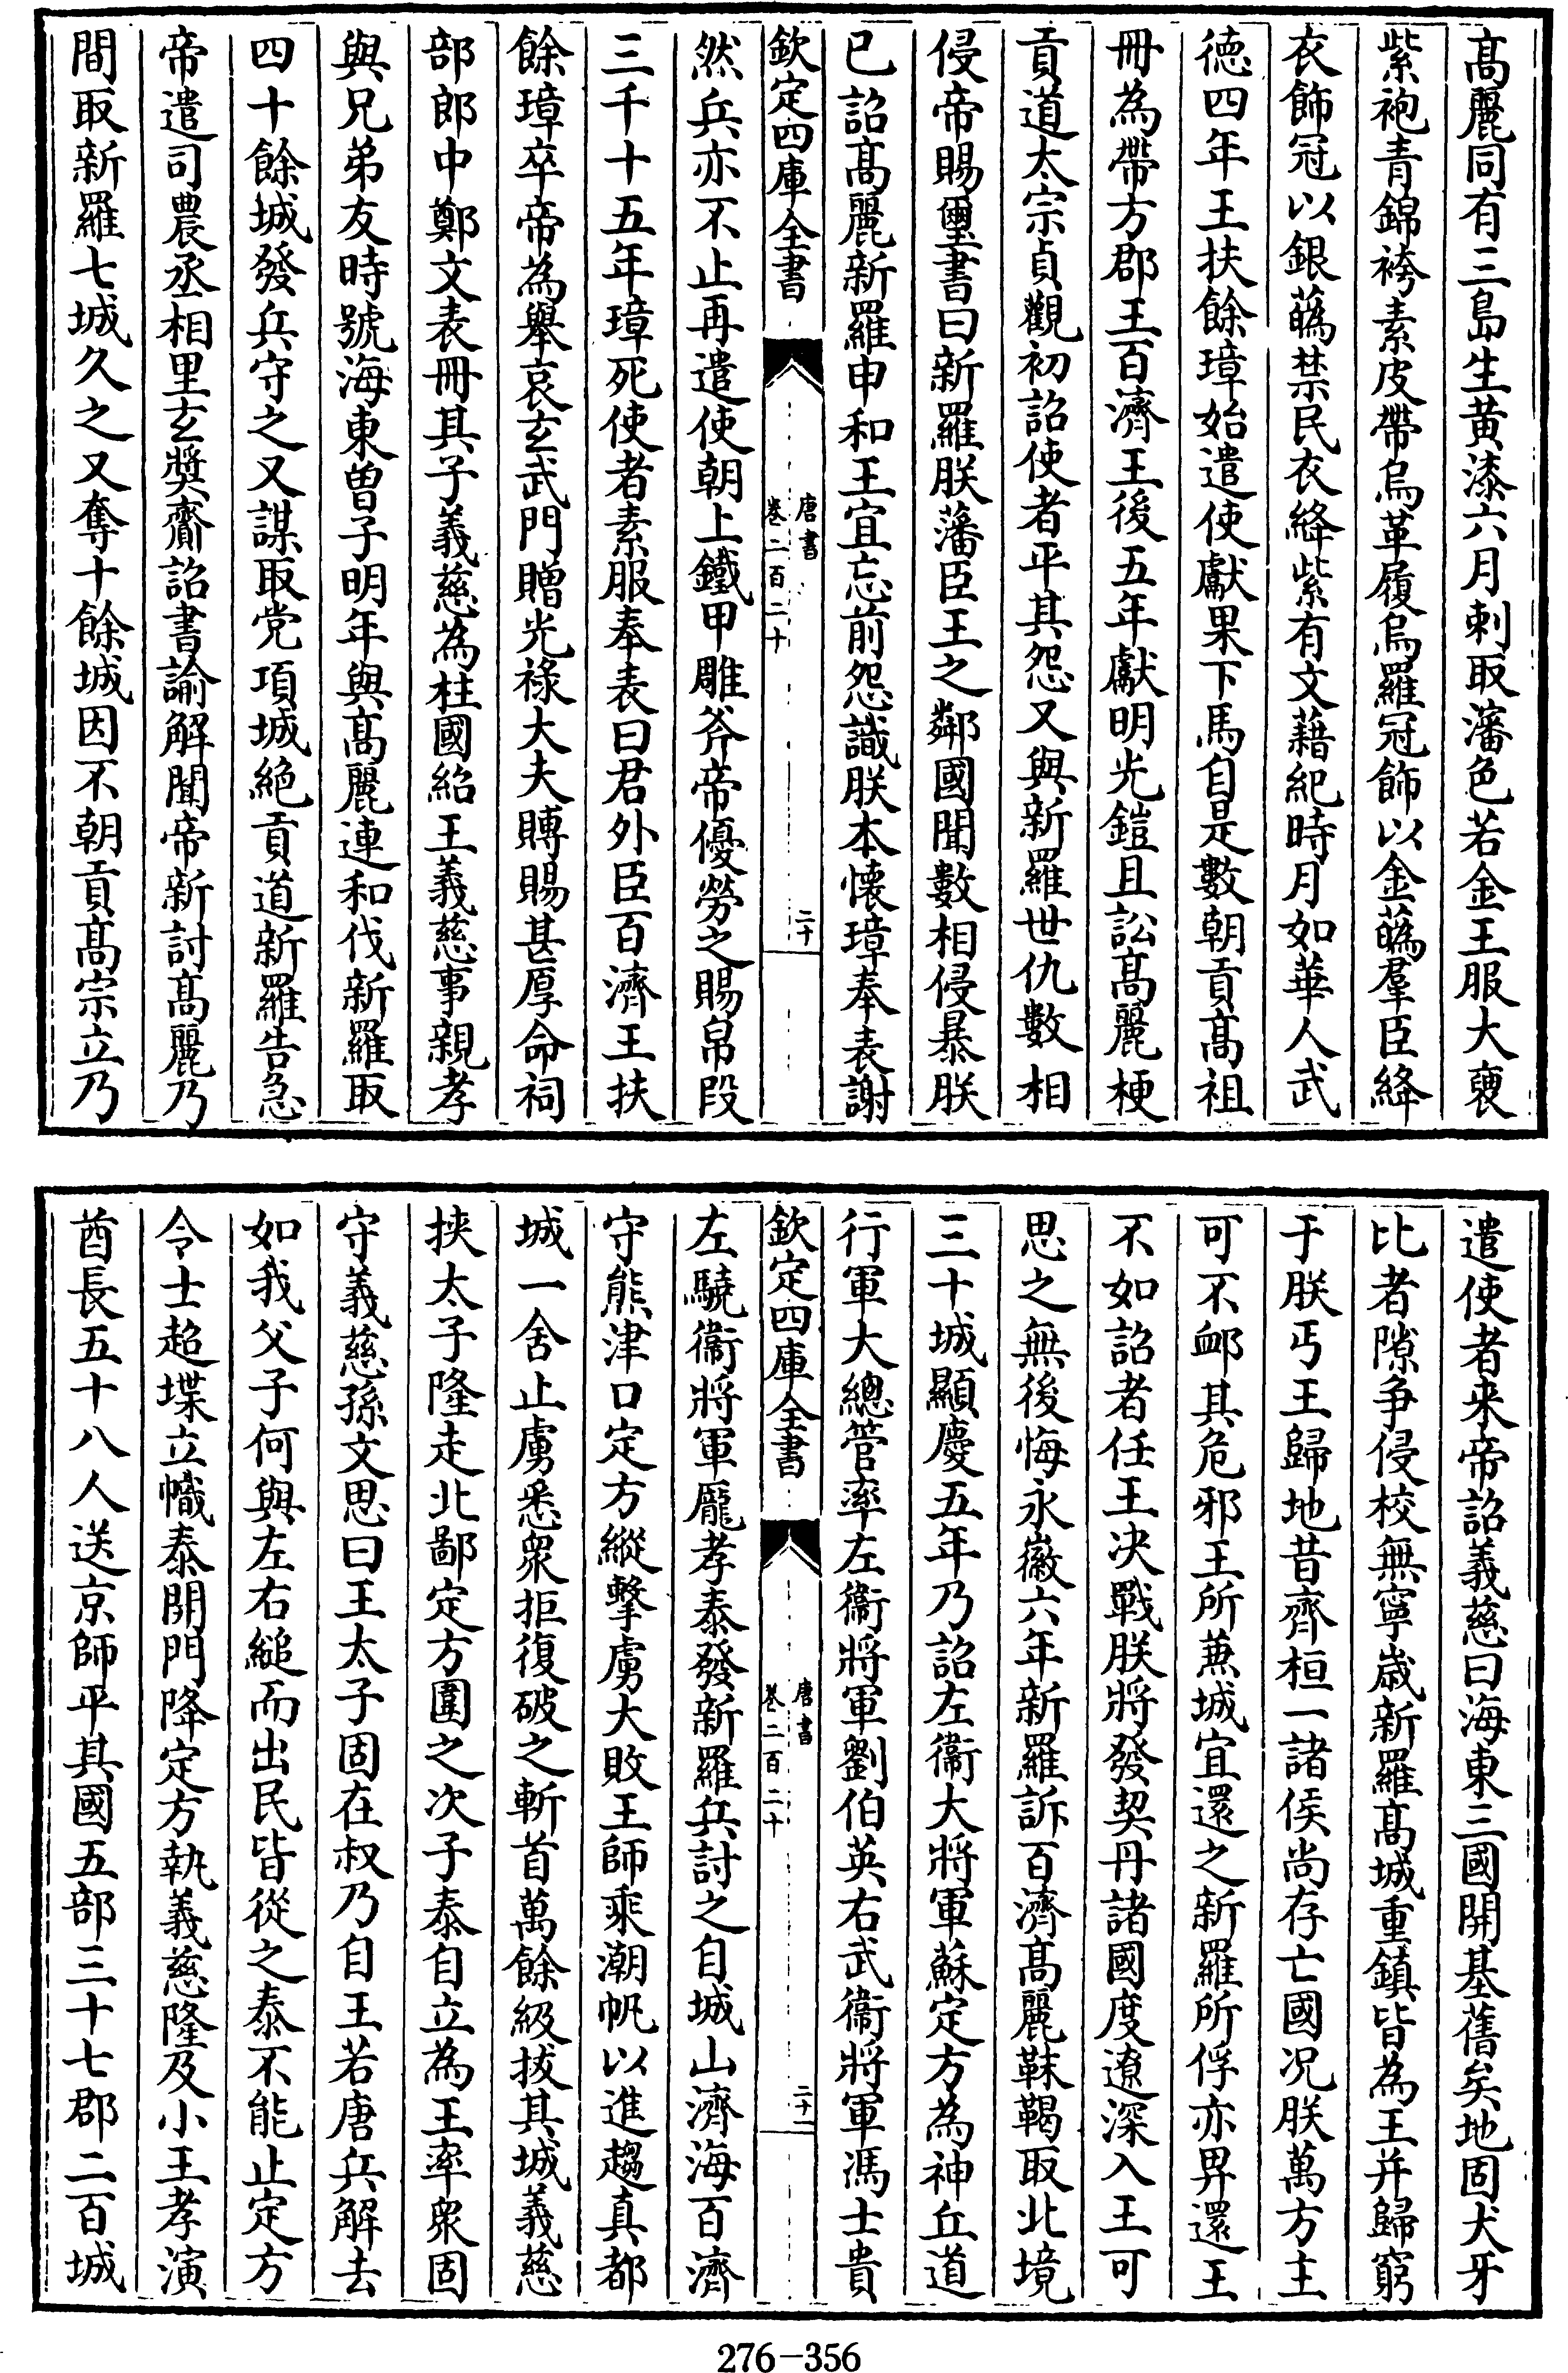 髙麗同有三島生黄漆六月刺取瀋色若金王服大䙃
紫袍青錦袴素皮帶烏革履烏羅冠飾以金蘤羣臣絳
衣飾冠以銀蘤禁民衣絳紫有文藉紀時月如華人武
徳四年王扶餘璋始遣使獻果下馬自是數朝貢髙祖
冊為帶方郡王百濟王後五年獻明光鎧且訟髙麗梗
貢道太宗貞觀初詔使者平其怨又與新羅世仇數相
侵帝賜璽書曰新羅朕藩臣王之鄰國聞數相侵暴朕
已詔髙麗新羅申和王宜忘前怨識朕本懐璋奉表謝
欽定四庫全書
唐書
卷二百二十
二十
然兵亦不止再遣使朝上鐵甲雕斧帝優勞之賜帛段
三千十五年璋死使者素服奉表曰君外臣百濟王扶
餘璋卒帝為舉哀玄武門贈光祿大夫賻賜甚厚命祠
部郎中鄭文表冊其子義慈為柱國紹王義慈事親孝
與兄弟友時號海東曽子明年與髙麗連和伐新羅取
四十餘城發兵守之又謀取党項城絶貢道新羅告急
帝遣司農丞相里玄奬齎詔書諭解聞帝新討髙麗乃
間取新羅七城久之又奪十餘城因不朝貢髙宗立乃
遣使者来帝詔義慈曰海東三國開基舊矣地固犬牙
比者隙争侵校無寧嵗新羅髙城重鎮皆為王并歸窮
于朕丐王歸地昔齊桓一諸侯尚存亡國况朕萬方主
可不衈其危邪王所兼城宜還之新羅所俘亦畀還王
不如詔者任王决戰朕將發契丹諸國度遼深入王可
思之無後悔永徽六年新羅訴百濟髙麗靺鞨取北境
三十城顯慶五年乃詔左衞大將軍蘇定方為神丘道
行軍大總管率左衞將軍劉伯英右武衞將軍馮士貴
欽定四庫全書
唐書
卷二百二十
二十一
左驍衞將軍龎孝泰發新羅兵討之自城山濟海百濟
守熊津口定方縱擊虜大敗王師乘潮帆以進趨真都
城一舍止虜悉衆拒復破之斬首萬餘級拔其城義慈
挾太子隆走北鄙定方圍之次子泰自立為王率衆固
守義慈孫文思曰王太子固在叔乃自王若唐兵解去
如我父子何與左右縋而出民皆從之泰不能止定方
令士超堞立幟泰開門降定方執義慈隆及小王孝演
酋長五十八人送京師平其國五部三十七郡二百城
276-356